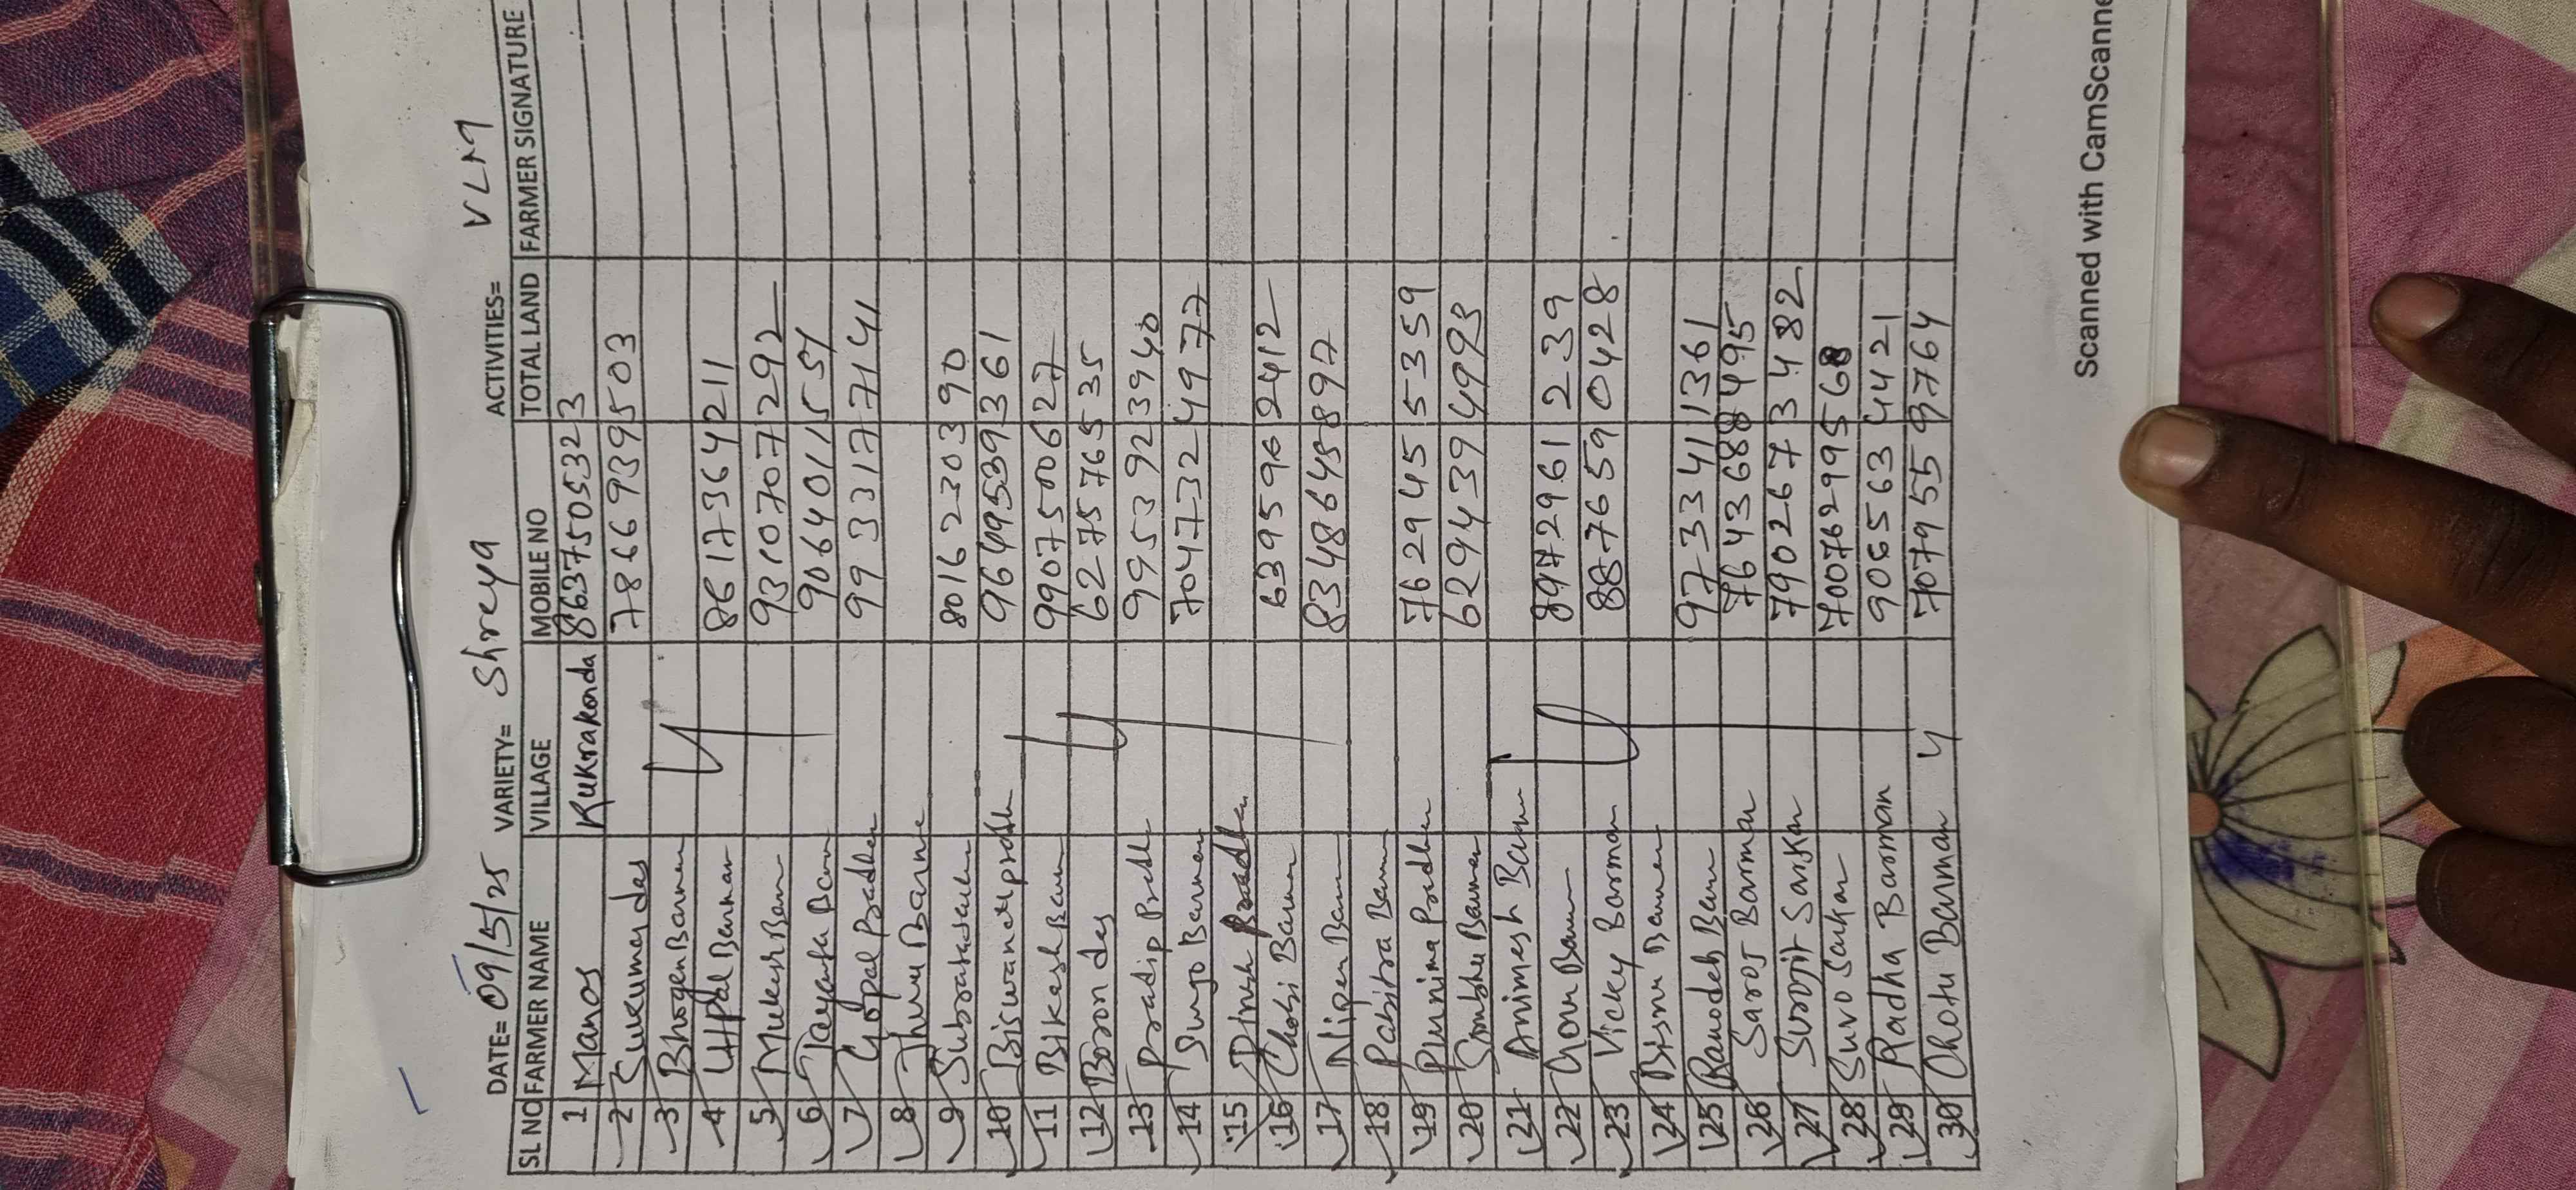 DATE= 09/5/25 VARIETY= Shreya ACTIVITIES= VLM
SL NO FARMER NAME VILLAGE MOBILE NO TOTAL LAND FARMER SIGNATURE
1 Manos Kukrakanda 8637505323
2 Sukumar das 7866939503
3 Bhogen Barman
4 Utpal Barman 8617364211
5 Mukesh Barm 9310707292
6 Jayanta Barm 9064011551
7 Gopal Pradhan 9933177141
8 Barne
9 8016230390
10 Biswanath pradh 9649539361
11 Bikash Barm 9907500627
12 Boron das 6275765535
13 Pradip Predh 9953923940
14 Sunjo Barman 7047324977
15
16 Chobi Barman 6395962412
17 Nipen Barm 8348645897
18 Pabitra Barm
19 Purnima Pradhan 7629455359
20 Sombhu Barman 6294394993
21 Animesh Barm
22 Gour Barm 8972961239
23 Vicky Barman 8876590428
24 Bisnu Barman
25 Ramodeb Barm 9733411361
26 Saroj Barman 7643688495
27 Surojit Sarkar 7902673482
28 Suvo Sarkar 700762995568
29 Radha Barman 905634421
30 Chotu Barman 7079559764
Scanned with CamScanne